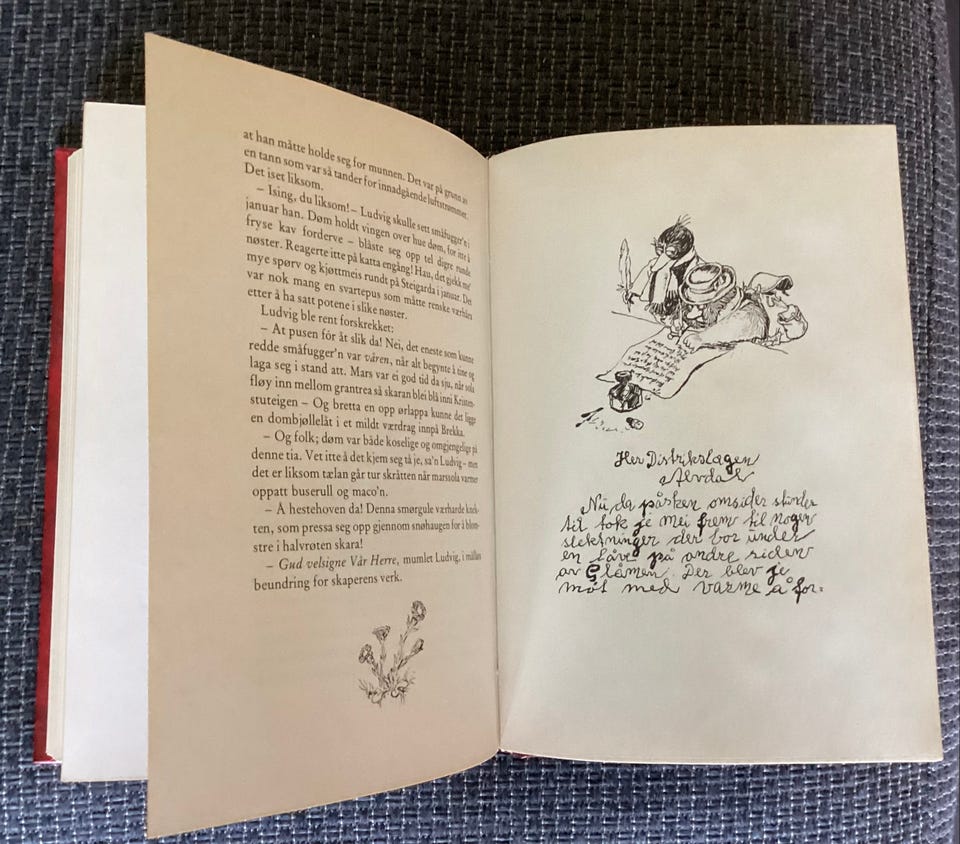 at han måtte holde seg for munnen. Det var på grunn av
en tann som var så tander for innadgående luftstrømmer.
Det iset liksom.
– Ising, du liksom! – Ludvig skulle sett småfugger'n i
januar han. Døm holdt vingen over hue døm, for itte å
fryse kav forderve – blåste seg opp tel digre runde
nøster. Reagerte itte på katta engång! Hau, det gjekk me'
mye spørv og kjøttmeis rundt på Steigarda i januar. Det
var nok mang en svartepus som måtte renske værhåra
etter å ha satt potene i slike nøster.
Ludvig ble rent forskrekket:
– At pusen fór åt slik da! Nei, det eneste som kunne
redde småfugger'n var våren, når alt begynte å tine og
laga seg i stand att. Mars var ei god tid da sju, når sola
fløy inn mellom grantrea så skaran blei blå inni Kristen-
stuteigen – Og bretta en opp ørlappa kunne det ligge
en dombjøllelåt i et mildt værdrag innpå Brekka.
– Og folk; døm var både koselige og omgjengelige på
denne tia. Vet itte å det kjem seg tå je, sa'n Ludvig – men
det er liksom tælan går tur skråtten når marssola varmer
oppatt buserull og maco'n.
– Å hestehoven da! Denna smørgule værharde knek-
ten, som pressa seg opp gjennom snøhaugen for å blom-
stre i halvrøten skara!
– Gud velsigne Vår Herre, mumlet Ludvig, i målløs
beundring for skaperens verk.
Her Distrikslægen
i Alvdal
Nu da påsken omsider stunder
til tok je mei frem til nogen
slektninger der bor under
en låve på andre siden
av Glåmen. Der blev je
møt med varme å for-